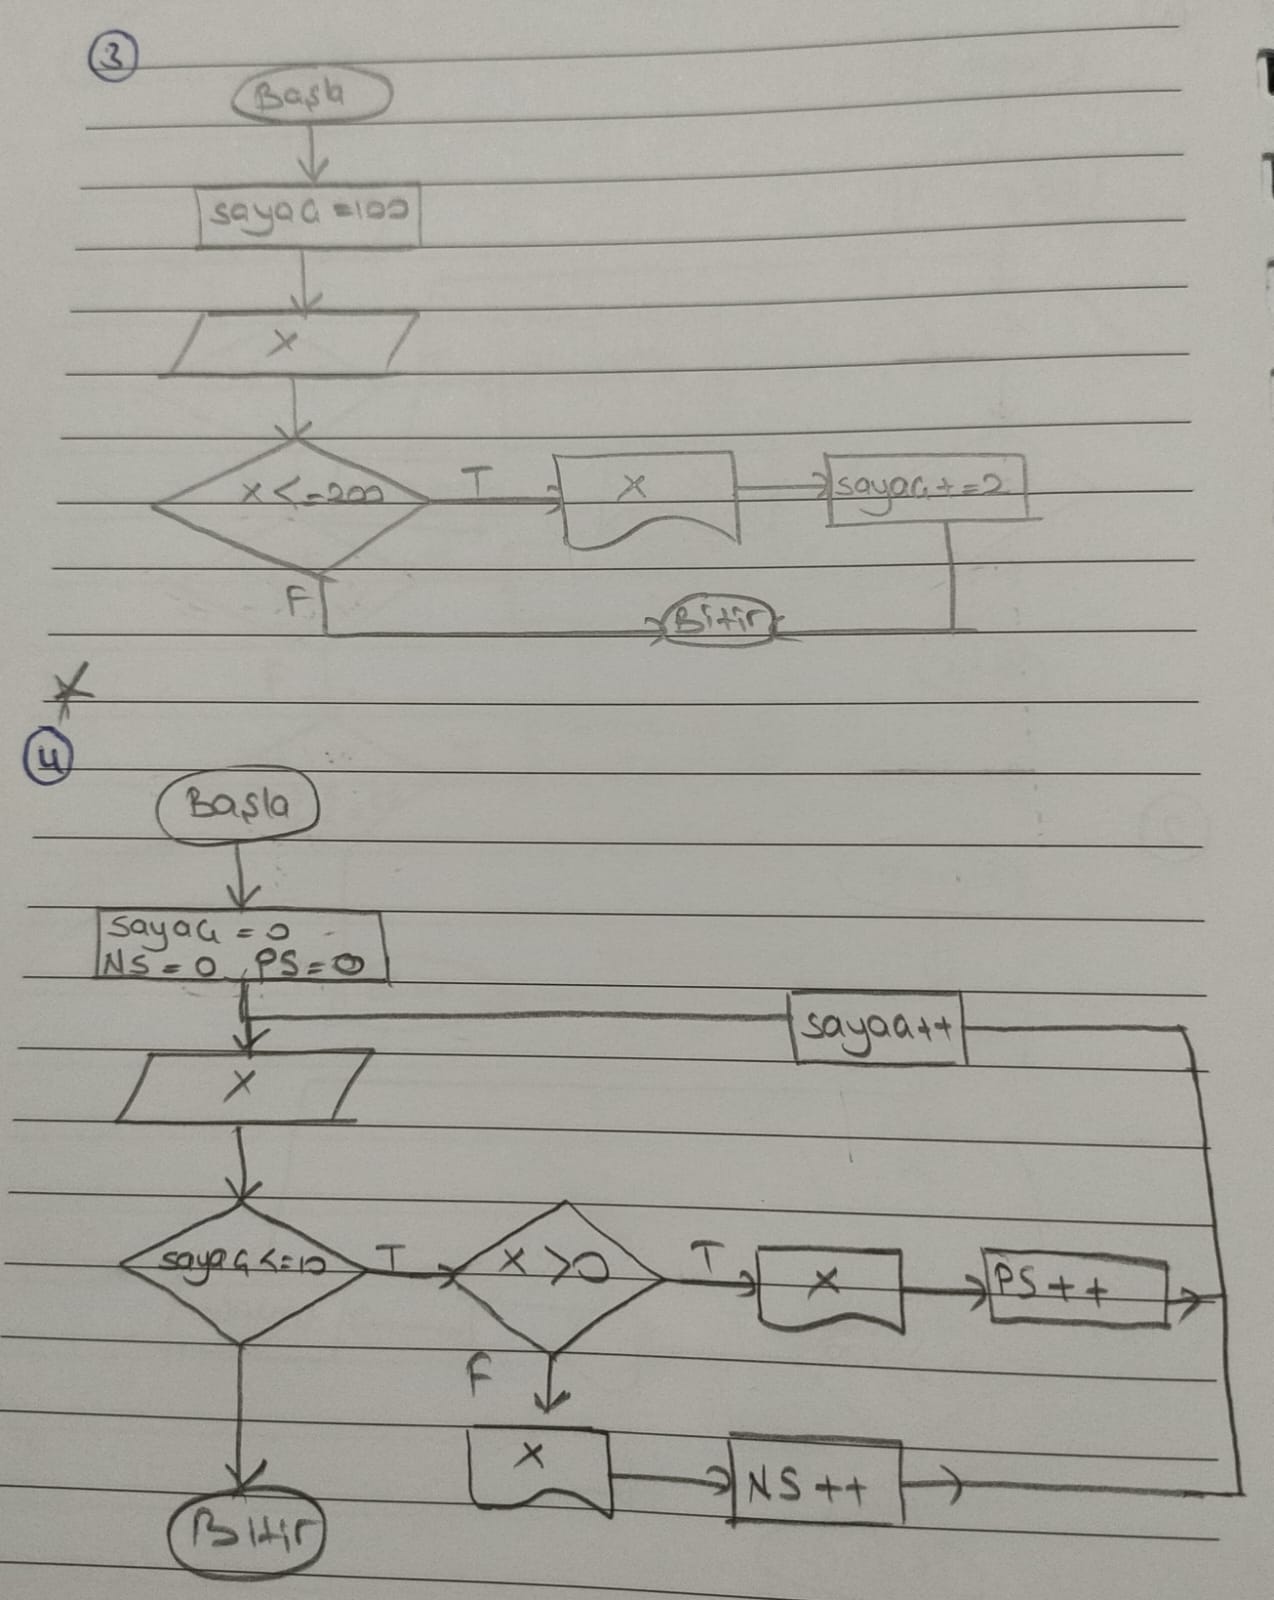 3
Başla
sayaç =100
X
X <=200
T
X
sayaç +=2
F
Bitir
X
4
Başla
sayaç = 0
NS = 0 , PS = 0
sayaç++
X
sayaç <=10
T
X >0
T
X
PS ++
F
X
NS ++
Bitir